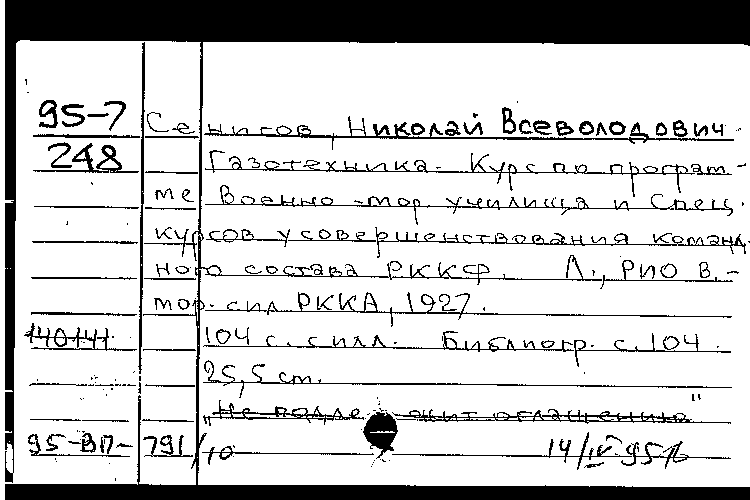 95-7 Сенигов, Николай Всеволодович.
248 Газотехника. Курс по програм-
ме Военно-мор. училища и Спец.
курсов усовершенствования команд-
ного состава РККФ. Л., РИО В.-
мор. сил РККА, 1927.
140141 104 с. с илл. Библиогр. с. 104.
25,5 см.
„Не подлежит оглашению"
95-ВП-791/10 14/IV 95